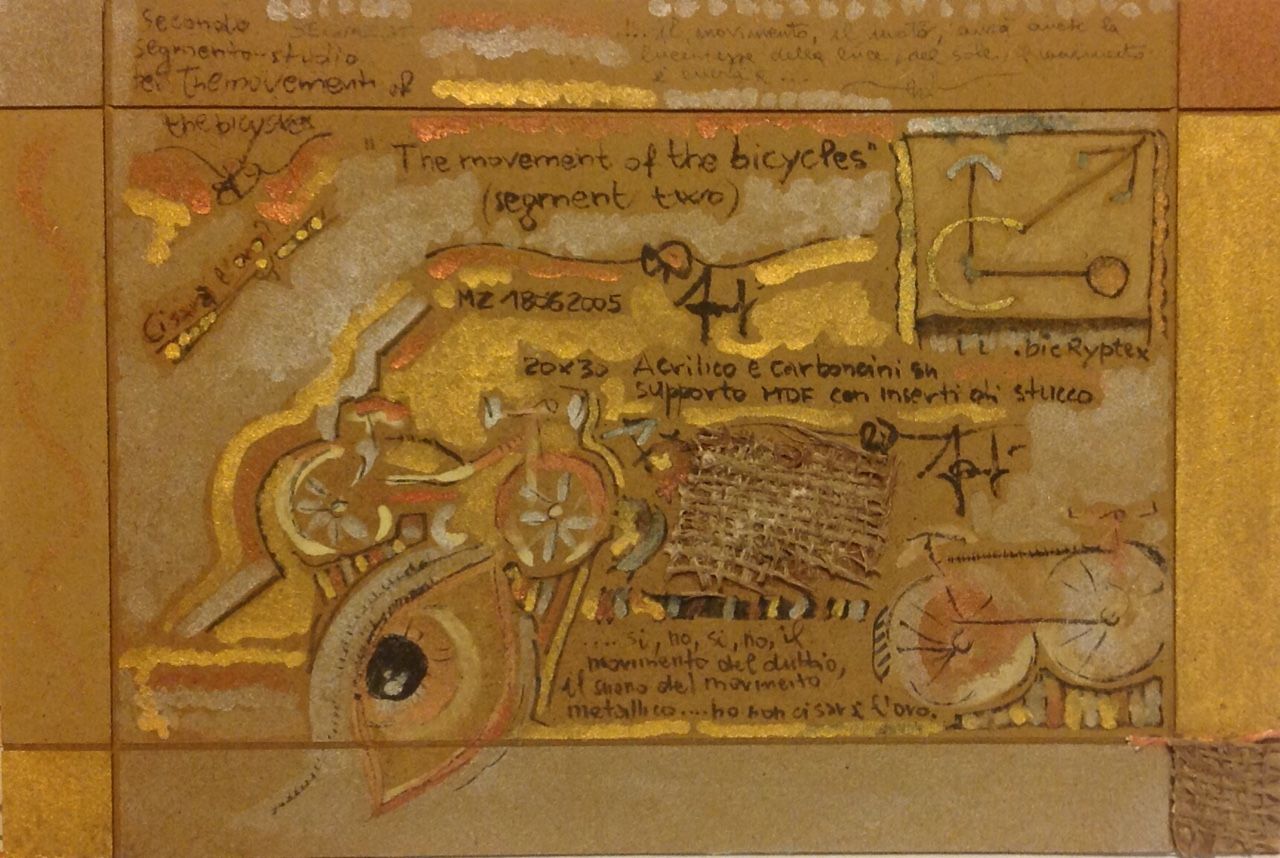 Secondo
segmento-studio
per The movement of
the bicycles
... il movimento, il moto, avrà anche la
lucentezza della luce, del sole,
è
"The movement of the bicycles"
(segment two)
Ci sarà l'oro?
MZ 18062005
.bicRyptex
20x30 Acrilico e carboncini su
supporto MDF con inserti di stucco
.... si, no, si, no, il
movimento del dubbio,
il suono del movimento
metallico .... no non ci sarà l'oro.